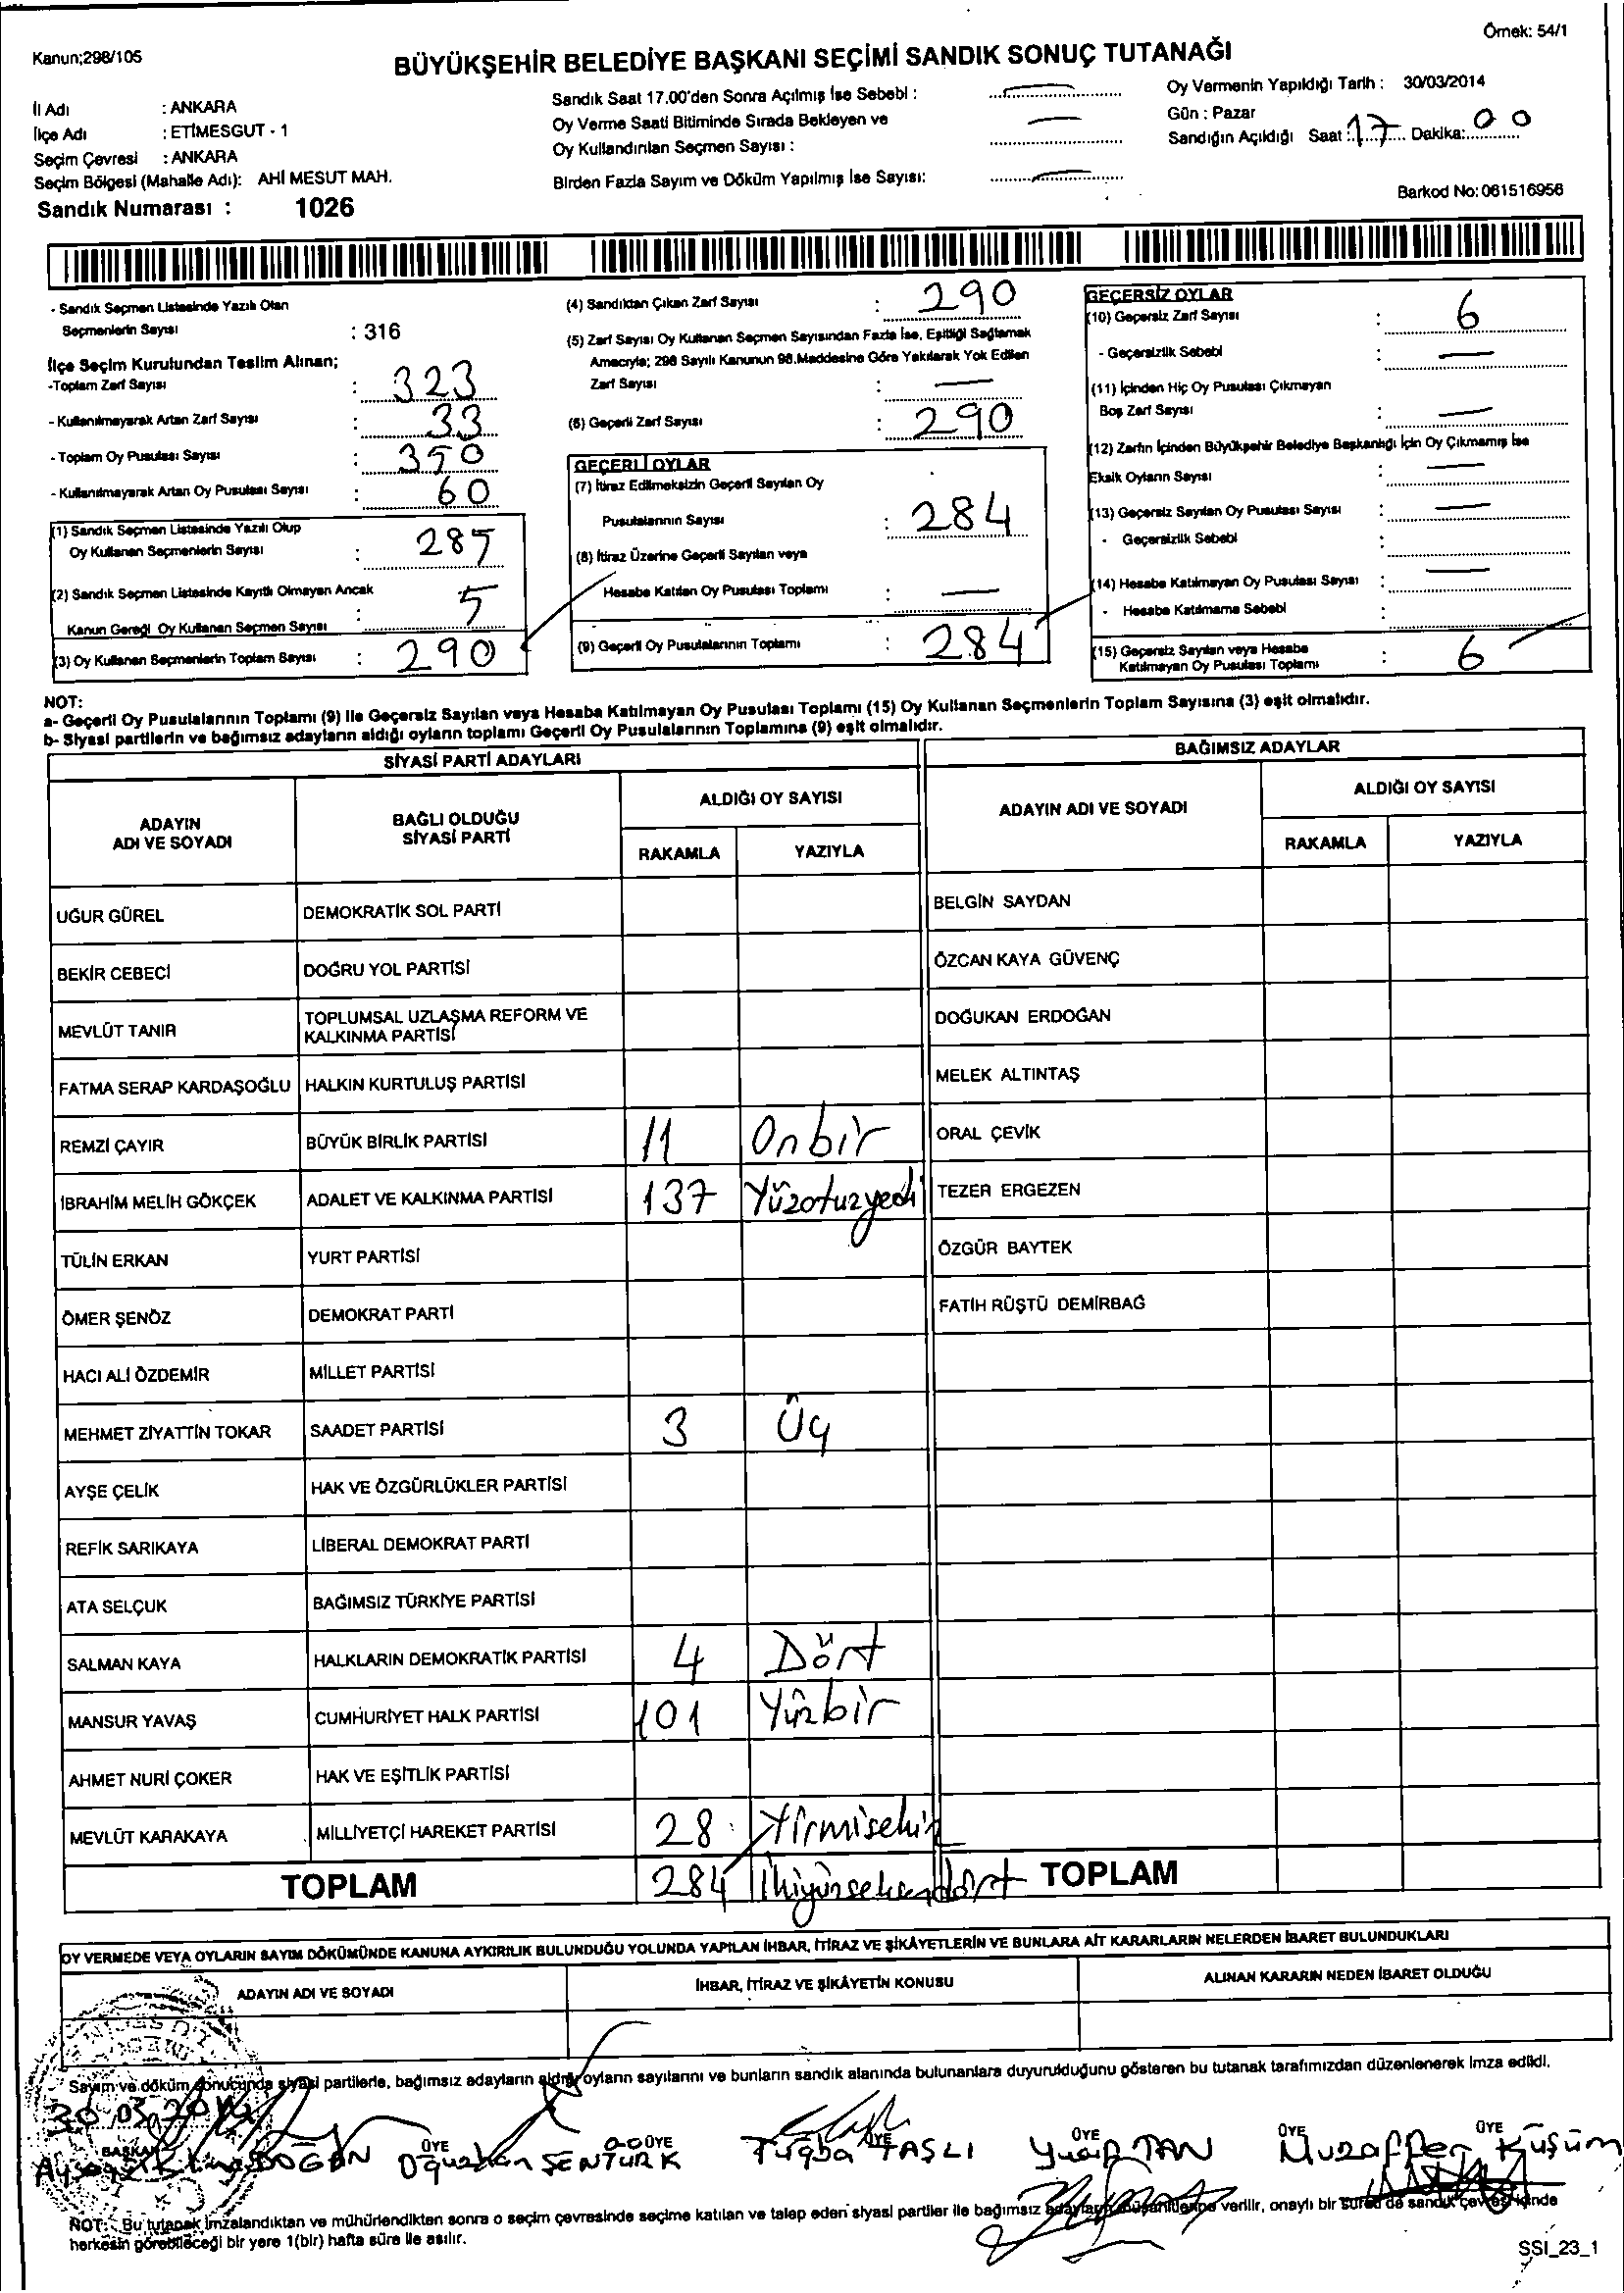 Örnek: 54/1
Kanun;298/105
BÜYÜKŞEHİR BELEDİYE BAŞKANI SEÇİMİ SANDIK SONUÇ TUTANAĞI
İl Adı : ANKARA
İlçe Adı : ETİMESGUT - 1
Seçim Çevresi : ANKARA
Seçim Bölgesi (Mahalle Adı): AHİ MESUT MAH.
Sandık Numarası : 1026
Sandık Saat 17.00'den Sonra Açılmış İse Sebebi :
Oy Verme Saati Bitiminde Sırada Bekleyen ve
Oy Kullandırılan Seçmen Sayısı :
Birden Fazla Sayım ve Döküm Yapılmış İse Sayısı:
Oy Vermenin Yapıldığı Tarih : 30/03/2014
Gün : Pazar
Sandığın Açıldığı Saat : 17 Dakika: 00
Barkod No: 061516956
- Sandık Seçmen Listesinde Yazılı Olan
Seçmenlerin Sayısı : 316
İlçe Seçim Kurulundan Teslim Alınan;
-Toplam Zarf Sayısı : 323
- Kullanılmayarak Artan Zarf Sayısı : 33
- Toplam Oy Pusulası Sayısı : 350
- Kullanılmayarak Artan Oy Pusulası Sayısı : 60
(1) Sandık Seçmen Listesinde Yazılı Olup
Oy Kullanan Seçmenlerin Sayısı : 285
(2) Sandık Seçmen Listesinde Kayıtlı Olmayan Ancak
Kanun Gereği Oy Kullanan Seçmen Sayısı : 5
(3) Oy Kullanan Seçmenlerin Toplam Sayısı : 290
(4) Sandıktan Çıkan Zarf Sayısı : 290
(5) Zarf Sayısı Oy Kullanan Seçmen Sayısından Fazla İse, Eşitliği Sağlamak
Amacıyla; 298 Sayılı Kanunun 98.Maddesine Göre Yakılarak Yok Edilen
Zarf Sayısı : —
(6) Geçerli Zarf Sayısı : 290
GEÇERLİ OYLAR
(7) İtiraz Edilmeksizin Geçerli Sayılan Oy
Pusulalarının Sayısı : 284
(8) İtiraz Üzerine Geçerli Sayılan veya
Hesaba Katılan Oy Pusulası Toplamı : —
(9) Geçerli Oy Pusulalarının Toplamı : 284
GEÇERSİZ OYLAR
(10) Geçersiz Zarf Sayısı : 6
- Geçersizlik Sebebi : —
(11) İçinden Hiç Oy Pusulası Çıkmayan
Boş Zarf Sayısı : —
(12) Zarfın İçinden Büyükşehir Belediye Başkanlığı İçin Oy Çıkmamış İse
Eksik Oyların Sayısı : —
(13) Geçersiz Sayılan Oy Pusulası Sayısı : —
- Geçersizlik Sebebi :
(14) Hesaba Katılmayan Oy Pusulası Sayısı : —
- Hesaba Katılmama Sebebi :
(15) Geçersiz Sayılan veya Hesaba
Katılmayan Oy Pusulası Toplamı : 6
NOT:
a- Geçerli Oy Pusulalarının Toplamı (9) ile Geçersiz Sayılan veya Hesaba Katılmayan Oy Pusulası Toplamı (15) Oy Kullanan Seçmenlerin Toplam Sayısına (3) eşit olmalıdır.
b- Siyasi partilerin ve bağımsız adayların aldığı oyların toplamı Geçerli Oy Pusulalarının Toplamına (9) eşit olmalıdır.
SİYASİ PARTİ ADAYLARI
BAĞIMSIZ ADAYLAR
ADAYIN ADI VE SOYADI
BAĞLI OLDUĞU SİYASİ PARTİ
ALDIĞI OY SAYISI
RAKAMLA YAZIYLA
ADAYIN ADI VE SOYADI
ALDIĞI OY SAYISI
RAKAMLA YAZIYLA
UĞUR GÜREL DEMOKRATİK SOL PARTİ BELGİN SAYDAN
BEKİR CEBECİ DOĞRU YOL PARTİSİ ÖZCAN KAYA GÜVENÇ
MEVLÜT TANIR TOPLUMSAL UZLAŞMA REFORM VE KALKINMA PARTİSİ DOĞUKAN ERDOĞAN
FATMA SERAP KARDAŞOĞLU HALKIN KURTULUŞ PARTİSİ MELEK ALTINTAŞ
REMZİ ÇAYIR BÜYÜK BİRLİK PARTİSİ 11 Onbir ORAL ÇEVİK
İBRAHİM MELİH GÖKÇEK ADALET VE KALKINMA PARTİSİ 137 Yüzotuzyedi TEZER ERGEZEN
TÜLİN ERKAN YURT PARTİSİ ÖZGÜR BAYTEK
ÖMER ŞENÖZ DEMOKRAT PARTİ FATİH RÜŞTÜ DEMİRBAĞ
HACI ALİ ÖZDEMİR MİLLET PARTİSİ
MEHMET ZİYATTİN TOKAR SAADET PARTİSİ 3 Üç
AYŞE ÇELİK HAK VE ÖZGÜRLÜKLER PARTİSİ
REFİK SARIKAYA LİBERAL DEMOKRAT PARTİ
ATA SELÇUK BAĞIMSIZ TÜRKİYE PARTİSİ
SALMAN KAYA HALKLARIN DEMOKRATİK PARTİSİ 4 Dört
MANSUR YAVAŞ CUMHURİYET HALK PARTİSİ 101 Yüzbir
AHMET NURİ ÇOKER HAK VE EŞİTLİK PARTİSİ
MEVLÜT KARAKAYA MİLLİYETÇİ HAREKET PARTİSİ 28 Yirmisekiz
TOPLAM 284 ikiyüzseksendört TOPLAM
OY VERMEDE VEYA OYLARIN SAYIM DÖKÜMÜNDE KANUNA AYKIRILIK BULUNDUĞU YOLUNDA YAPILAN İHBAR, İTİRAZ VE ŞİKÂYETLERİN VE BUNLARA AİT KARARLARIN NELERDEN İBARET BULUNDUKLARI
ADAYIN ADI VE SOYADI İHBAR, İTİRAZ VE ŞİKÂYETİN KONUSU ALINAN KARARIN NEDEN İBARET OLDUĞU
Sayım ve döküm sonucunda siyasi partilerle, bağımsız adayların aldığı oyların sayılarını ve bunların sandık alanında bulunanlara duyurulduğunu gösteren bu tutanak tarafımızdan düzenlenerek imza edildi.
30.03.2014
BAŞKAN ÜYE ÜYE ÜYE ÜYE ÜYE ÜYE
DOĞAN Oğuzhan ŞENTÜRK Tuğba TAŞLI Yusuf TAN Muzaffer Küşüm
NOT: Bu tutanak imzalandıktan ve mühürlendikten sonra o seçim çevresinde seçime katılan ve talep eden siyasi partiler ile bağımsız adayların müşahitlerine verilir, onaylı bir sureti de sandık çevresi içinde
herkesin görebileceği bir yere 1(bir) hafta süre ile asılır.
SSI_23_1